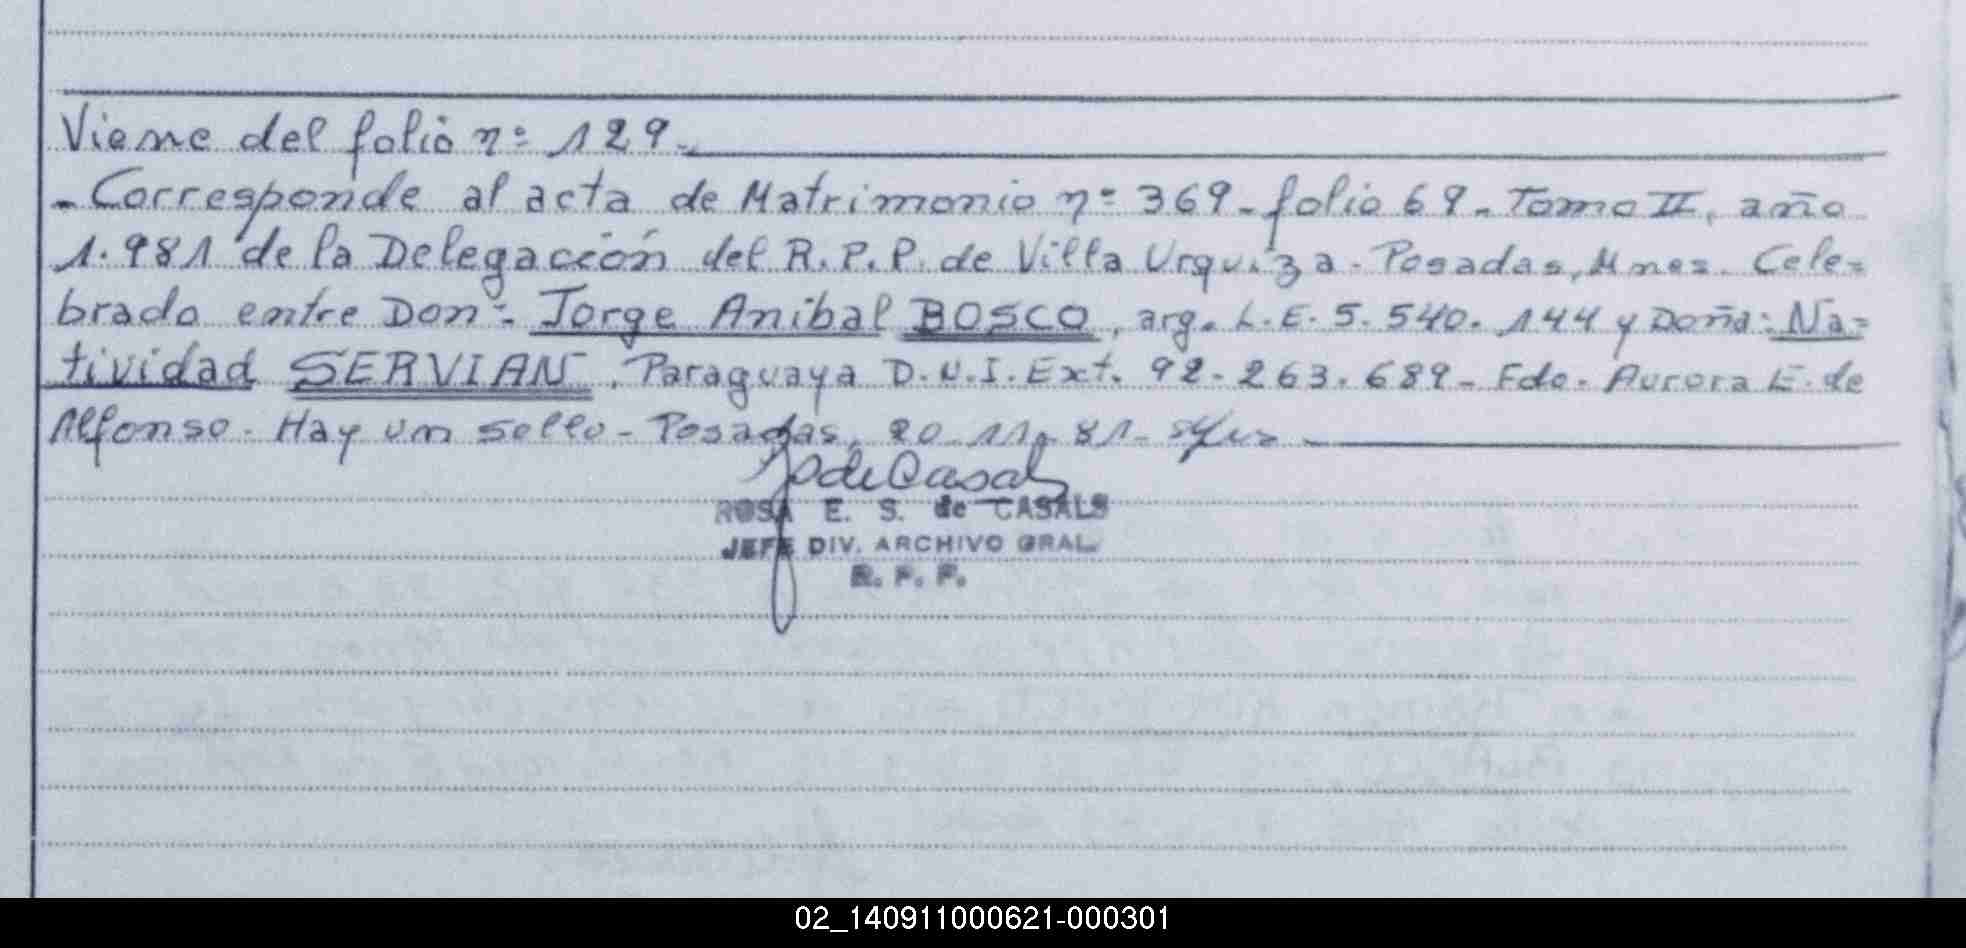 Viene del folio nº 129.-
-Corresponde al acta de Matrimonio nº 369-folio 69-Tomo II, año
1.981 de la Delegación del R.P.P. de Villa Urquiza-Posadas, Mnes. Cele=
brado entre Don:- Jorge Anibal BOSCO, arg. L.E. 5.540.144 y Doña: Na=
tividad SERVIAN, Paraguaya D.N.I. Ext. 92-263.689- Fdo. Aurora E. de
Alfonso. Hay un sello-Posadas, 20-11-81-
ROSA E. S. de CASALS
JEFE DIV. ARCHIVO GRAL.
R. P. P.
02_140911000621-000301